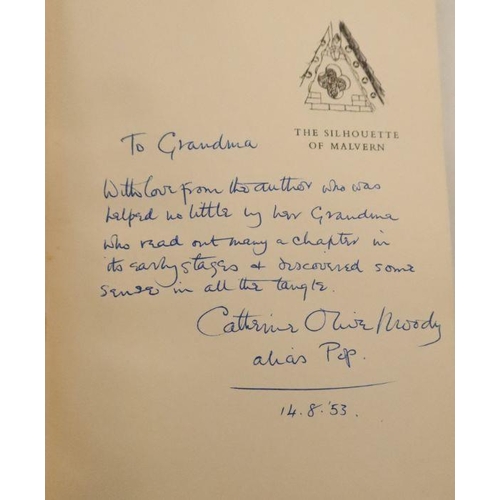 THE SILHOUETTE
OF MALVERN
To Grandma
With love from the author who was
helped no little by her Grandma
who read out many a chapter in
its early stages & discovered some
sense in all the tangle.
Catherine Olive Moody
alias Pip.
14.8.'53.